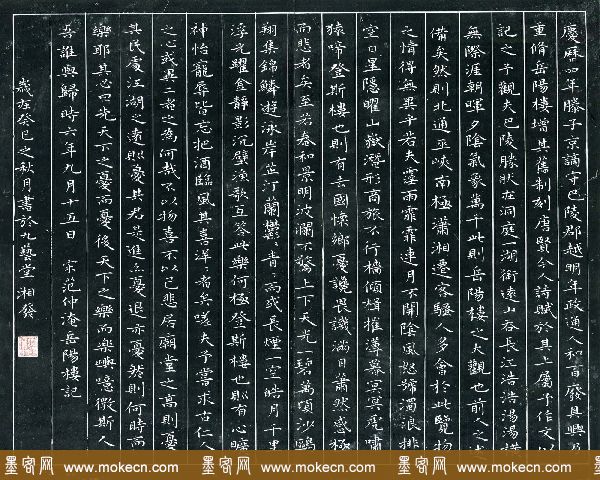 慶曆四年滕子京謫守巴陵郡越明年政通人和百廢具興乃
重脩岳陽樓增其舊制刻唐賢今人詩賦於其上屬予作文以
記之予觀夫巴陵勝狀在洞庭一湖銜遠山吞長江浩浩湯湯
無際涯朝暉夕陰氣象萬千此則岳陽樓之大觀也前人之述
備矣然則北通巫峽南極瀟湘遷客騷人多會於此覽物
之情得無異乎若夫霪雨霏霏連月不開陰風怒號濁浪排
空日星隱曜山嶽潛形商旅不行檣傾楫摧薄暮冥冥虎嘯
猿啼登斯樓也則有去國懷鄉憂讒畏譏滿目蕭然感極
而悲者矣至若春和景明波瀾不驚上下天光一碧萬頃沙鷗
翔集錦鱗游泳岸芷汀蘭鬱〻青〻而或長煙一空皓月千里
浮光躍金靜影沉璧漁歌互答此樂何極登斯樓也則有心曠
神怡寵辱皆忘把酒臨風其喜洋〻者矣嗟夫予嘗求古仁人
之心或異二者之為何哉不以物喜不以己悲居廟堂之高則憂
其民處江湖之遠則憂其君是進亦憂退亦憂然則何時而
樂耶其必曰先天下之憂而憂後天下之樂而樂歟噫微斯人
吾誰與歸時六年九月十五日 宋范仲淹岳陽樓記
歲在癸巳之秋月書於九藝堂 湘發
墨客网 www.mokecn.com 墨客网 www.mokecn.com 墨客网 www.mokecn.com